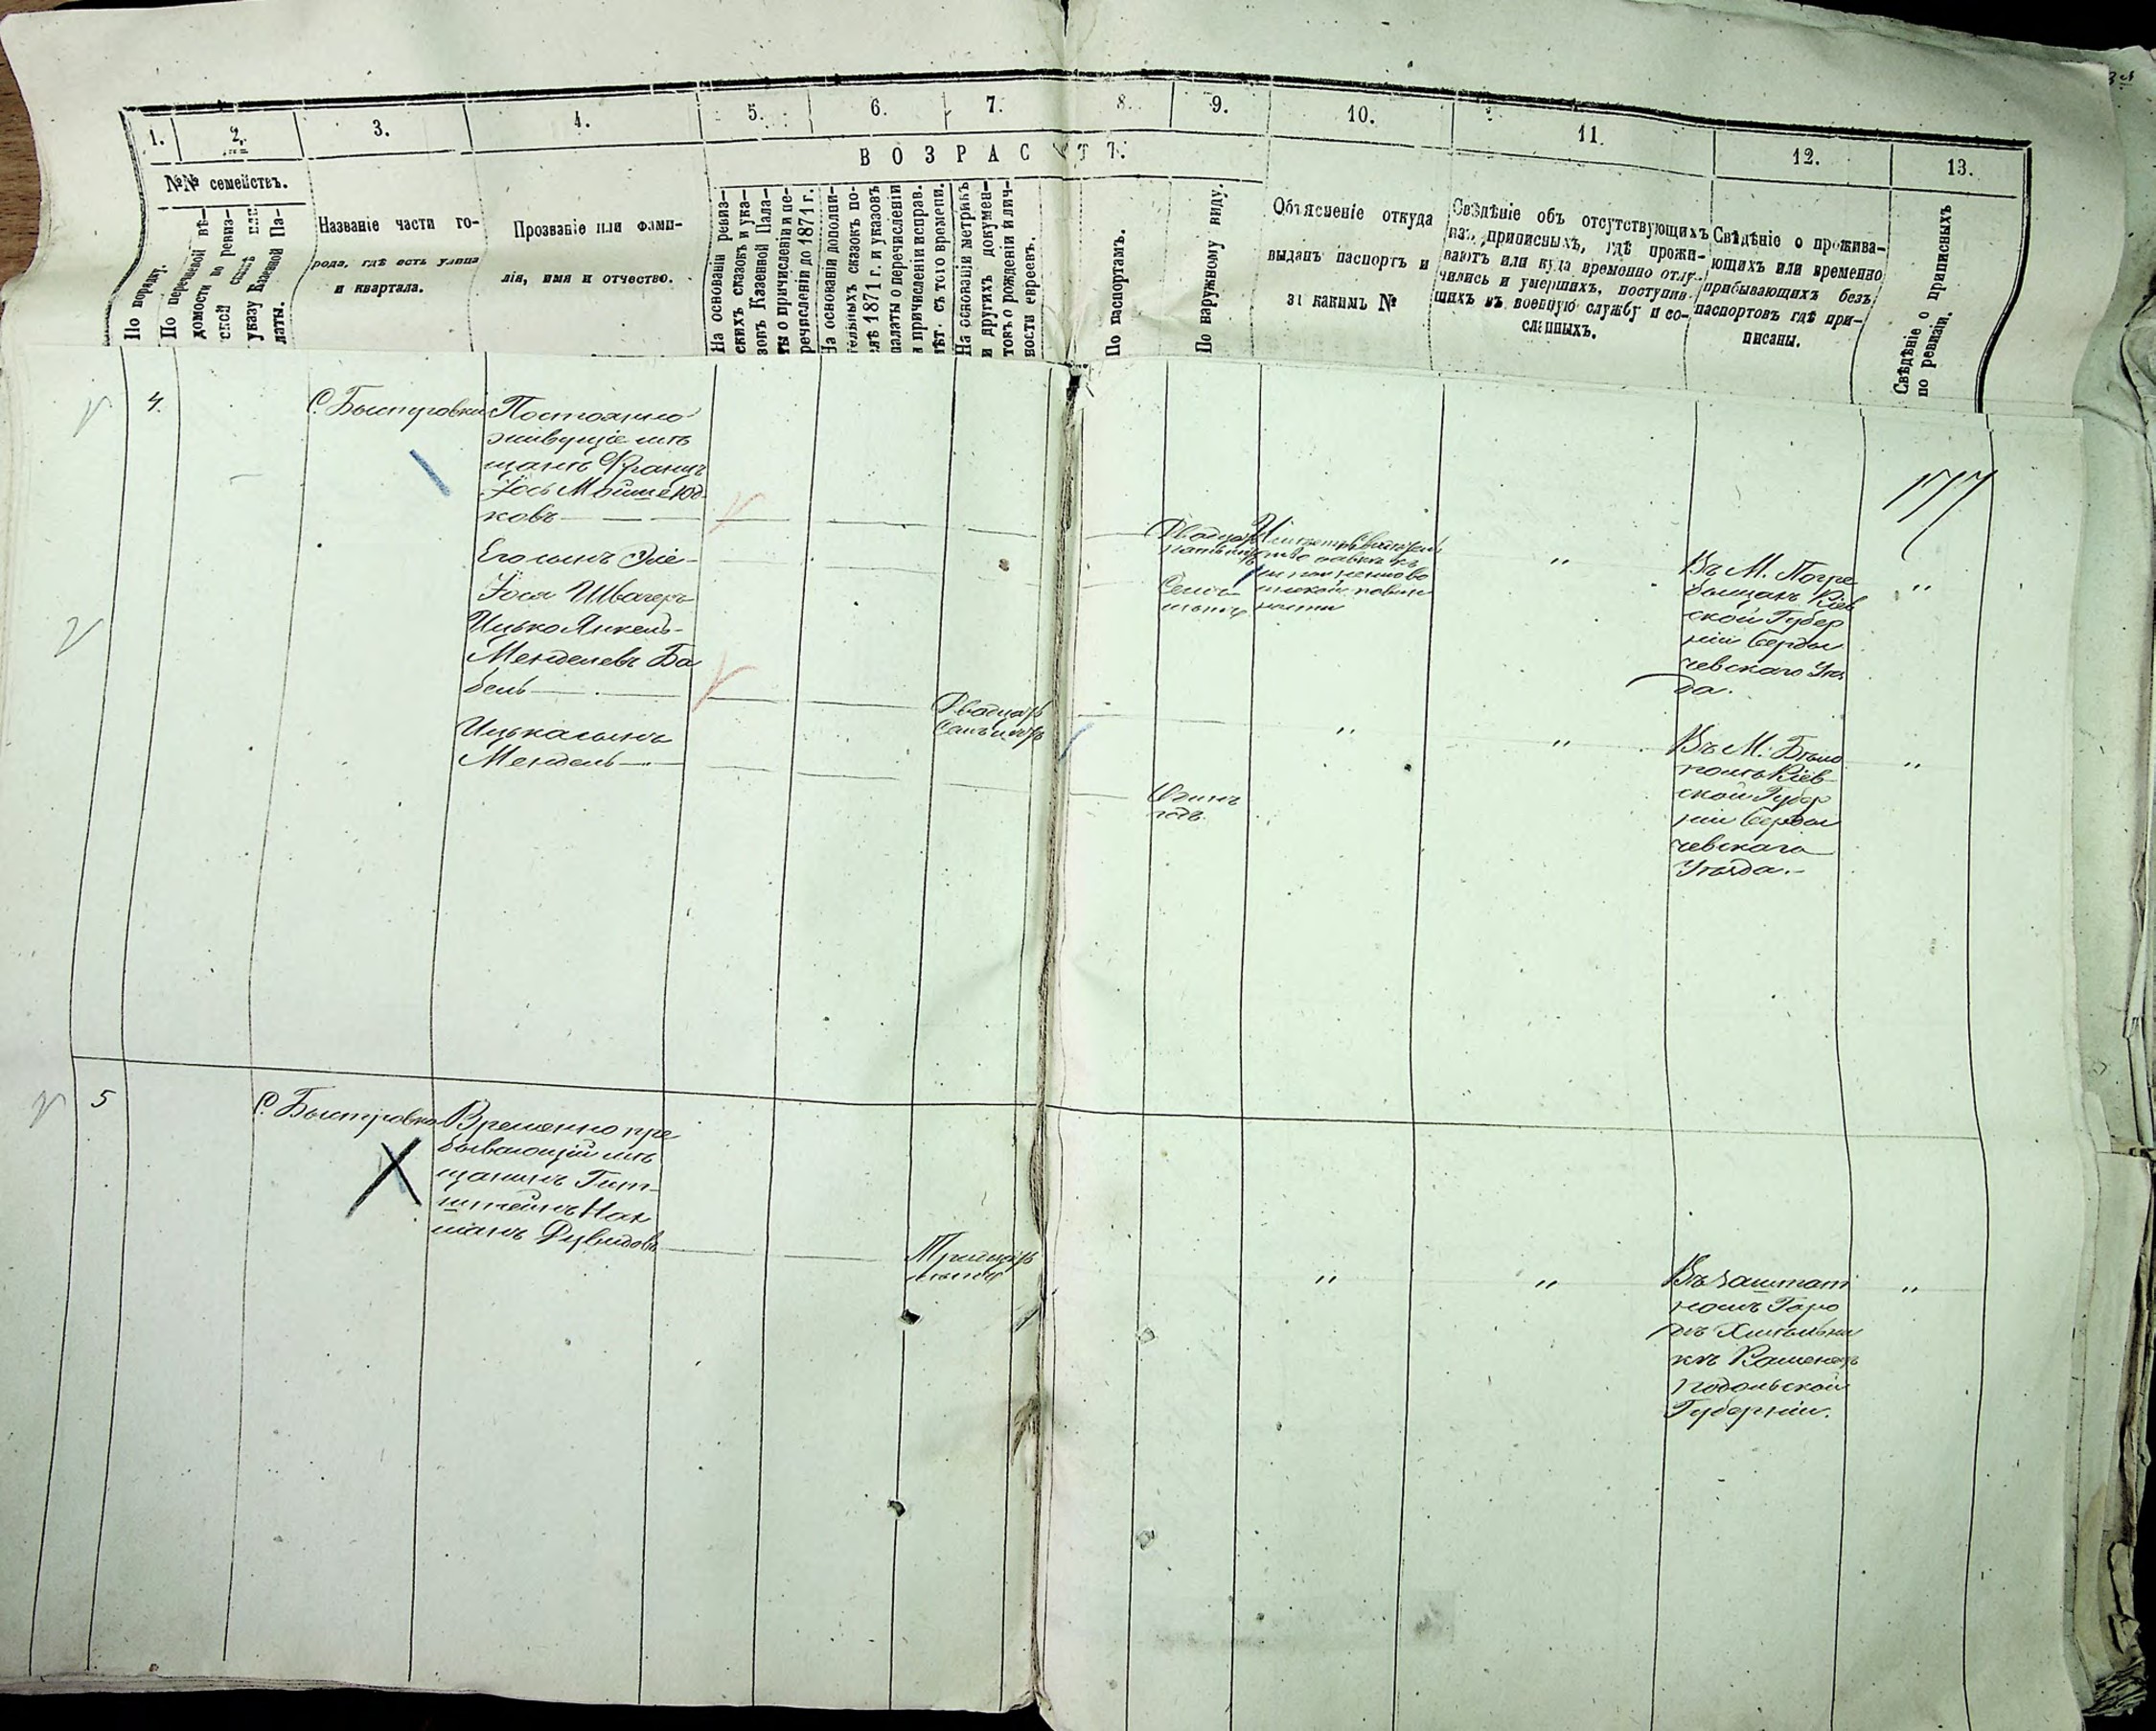 1.
2.
3.
4.
5.
6.
7.
8.
9.
10.
11.
12.
13.
ВОЗРАСТЪ.
№№ семействъ.
По порядку.
По перечневой вѣ-
домости по ревиз-
ской сказкѣ или
указу Казенной Па-
латы.
Названіе части го-
рода, гдѣ есть улица
и квартала.
Прозваніе или фами-
лія, имя и отчество.
На основаніи ревиз-
скихъ сказокъ и ука-
зовъ Казенной Пала-
ты о причисленіи и пе-
речисленіи до 1871 г.
На основаніи дополни-
тельныхъ сказокъ по-
слѣ 1871 г. и указовъ
палаты о перечисленіи
и причисленіи исправ.
лѣт. съ того времени.
На основаніи метрикъ
и другихъ докумен-
товъ о рожденіи и лич-
ности евреевъ.
По паспортамъ.
По наружному виду.
Объясненіе откуда
выданъ паспортъ и
за какимъ №
Свѣдѣніе объ отсутствующихъ
изъ приписныхъ, гдѣ прожи-
ваютъ или куда временно отлу-
чились и умершихъ, поступив-
шихъ въ военную службу и со-
сланныхъ.
Свѣдѣніе о прожива-
ющихъ или временно
прибывающихъ безъ
паспортовъ гдѣ при-
писаны.
Свѣдѣніе о приписныхъ
по ревизіи.
4.
С. Быстровка
Постоянно
живущіе мѣ
щанъ Франц
Іось Мойше Юд-
ковъ
Его сынъ
Іося Швагеръ
Ицько Янкель-
Менделевъ Ба
бель
Ицька сынъ
Мендель
Двадцать
Семь лѣтъ
Двадцать
пять лѣтъ
Семь
лѣтъ
Одинъ
годъ.
повин
ности
"
"
"
"
"
Въ М. Погре
быщахъ Кіев
ской Губер
ніи Берды
чевскаго Уѣз
да.
Въ М. Бѣло
полѣ Кіев-
ской Губер
ніи Берды
чевскаго
Уѣзда.-
5
С. Быстровка
Временно пре
бывающій мѣ
щанинъ Гит-
штейнъ Нах
манъ Дувидовъ
Тридцать
лѣтъ
"
"
"
Въ заштат
номъ Горо
дѣ Хмѣльни
кѣ Каменец
Подольской
Губерніи.